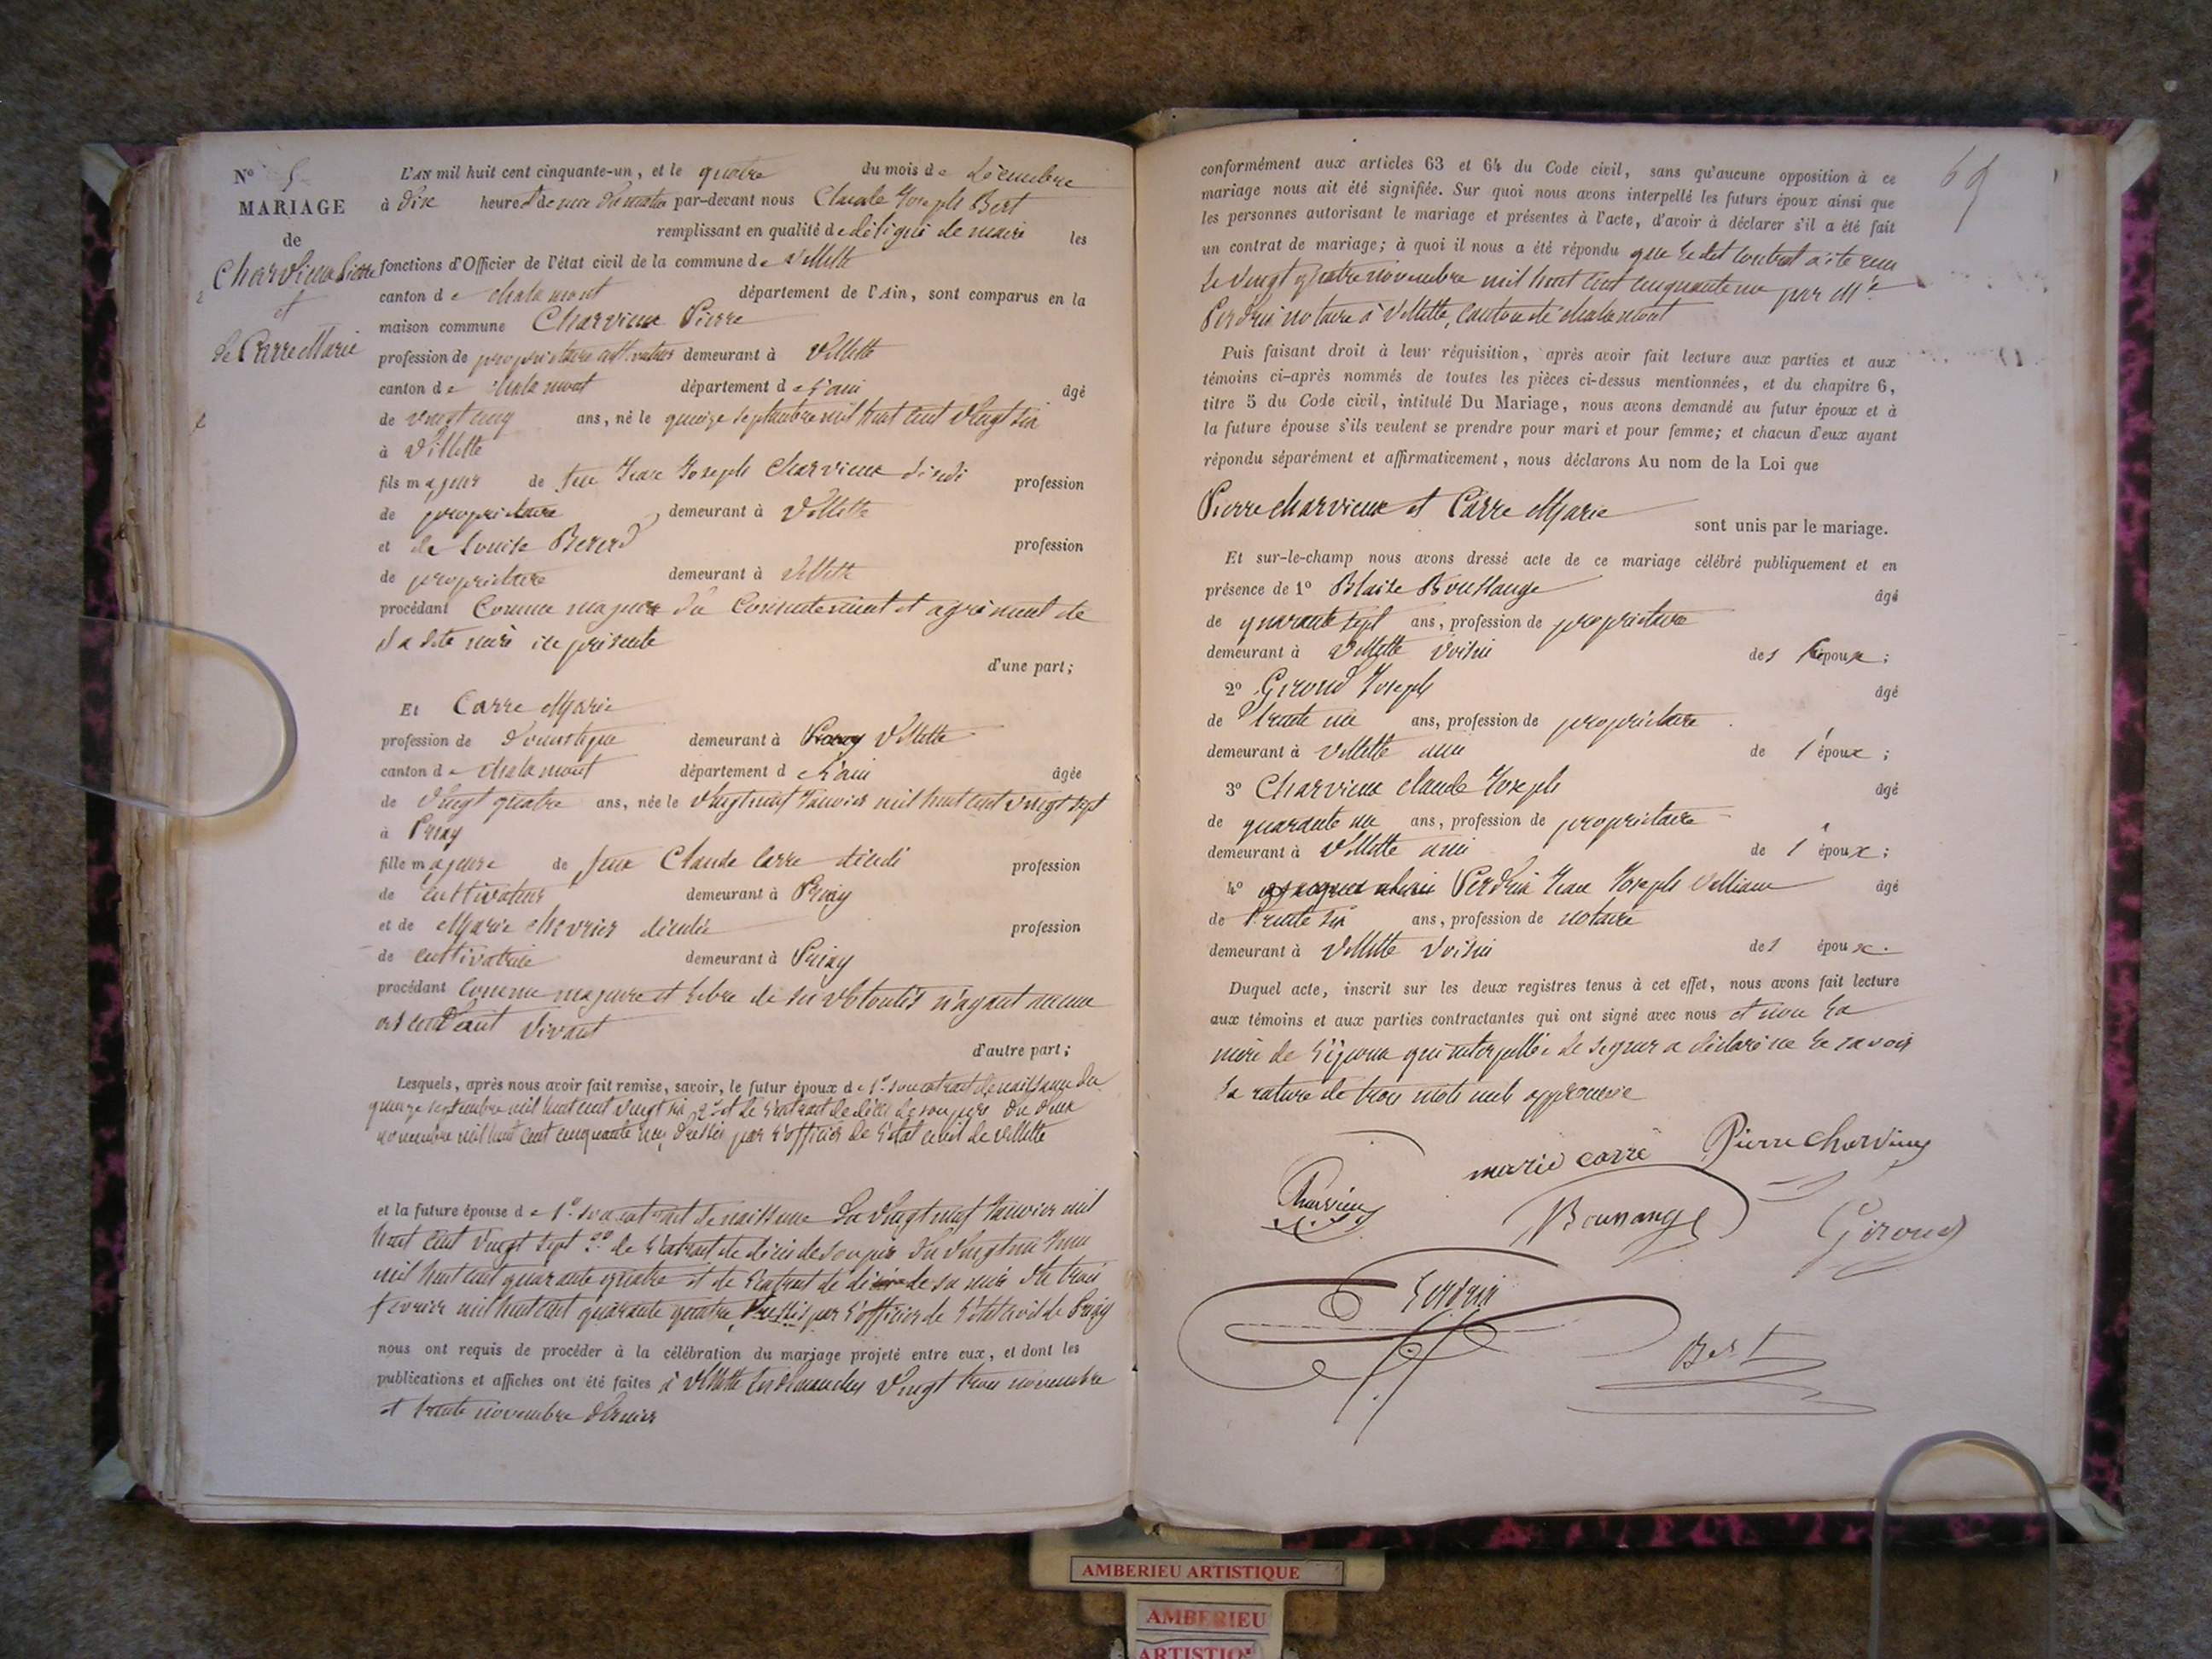 N° 5
MARIAGE
de
Charvieux Pierre
et
de Carre Marie
L'AN mil huit cent cinquante-un, et le quatre du mois de décembre
à dix heures du matin par-devant nous Claude Joseph Bert
remplissant en qualité de délégué de maire les
fonctions d'Officier de l'état civil de la commune de Villette
canton de chalamont département de l'Ain, sont comparus en la
maison commune Charvieux Pierre
profession de propriétaire cultivateur demeurant à Villette
canton de chalamont département de l'ain âgé
de vingt cinq ans, né le quinze septembre mil huit cent vingt six
à Villette
fils majeur de feu Jean Joseph Charvieux décédé profession
de propriétaire demeurant à Villette
et de Louise Bererd profession
de propriétaire demeurant à Villette
procédant Comme majeur du Consentement et agrément de
sa dite mère ici présente
d'une part;
Et Carre Marie
profession de domestique demeurant à Villette
canton de chalamont département de l'ain âgée
de vingt quatre ans, née le vingt neuf Janvier mil huit cent vingt sept
à Priay
fille majeure de feux Claude Carre décédé profession
de cultivateur demeurant à Priay
et de Marie Chevrier décédée profession
de cultivatrice demeurant à Priay
procédant Comme majeure et libre de ses volontés n'ayant aucun
ascendant vivant
d'autre part;
Lesquels, après nous avoir fait remise, savoir, le futur époux de 1° son extrait de naissance du
quinze septembre mil huit cent vingt six 2° et de l'extrait de décès de son père du deux
novembre mil huit cent cinquante un, dressés par l'officier de l'état civil de villette
et la future épouse de 1° son extrait de naissance du vingt neuf Janvier mil
huit cent vingt sept 2° de l'extrait de décès de son père du vingt un Juin
mil huit cent quarante quatre et de l'extrait de décès de sa mère du trois
février mil huit cent quarante quatre, dressés par l'officier de l'état civil de Priay
nous ont requis de procéder à la célébration du mariage projeté entre eux, et dont les
publications et affiches ont été faites à Villette les dimanches vingt trois novembre
et trente novembre dernier
69
conformément aux articles 63 et 64 du Code civil, sans qu'aucune opposition à ce
mariage nous ait été signifiée. Sur quoi nous avons interpellé les futurs époux ainsi que
les personnes autorisant le mariage et présentes à l'acte, d'avoir à déclarer s'il a été fait
un contrat de mariage; à quoi il nous a été répondu que le dit contrat a été reçu
le vingt quatre novembre mil huit cent cinquante un par Me
Perdrix notaire à Villette, canton de chalamont
Puis faisant droit à leur réquisition, après avoir fait lecture aux parties et aux
témoins ci-après nommés de toutes les pièces ci-dessus mentionnées, et du chapitre 6,
titre 5 du Code civil, intitulé Du Mariage, nous avons demandé au futur époux et à
la future épouse s'ils veulent se prendre pour mari et pour femme; et chacun d'eux ayant
répondu séparément et affirmativement, nous déclarons Au nom de la Loi que
Pierre charvieux et Carre Marie
sont unis par le mariage.
Et sur-le-champ nous avons dressé acte de ce mariage célébré publiquement et en
présence de 1° Blaise Boussange âgé
de quarante sept ans, profession de propriétaire
demeurant à Villette voisin des époux;
2° Giroud Joseph âgé
de trente un ans, profession de propriétaire
demeurant à villette ami de l'époux;
3° Charvieux claude Joseph âgé
de quarante un ans, profession de propriétaire
demeurant à Villette ami de l'époux;
4° Perdrix Jean Joseph âgé
de trente six ans, profession de notaire
demeurant à Villette voisin des époux.
Duquel acte, inscrit sur les deux registres tenus à cet effet, nous avons fait lecture
aux témoins et aux parties contractantes qui ont signé avec nous et non la
mère de l'époux qui interpellée de signer a déclaré ne le savoir
la rature de trois mots nuls approuvée
marie carré Pierre charvieux
Charvieux Boussange Giroud
Perdrix
Bert
AMBERIEU ARTISTIQUE
AMBERIEU
ARTISTIQ